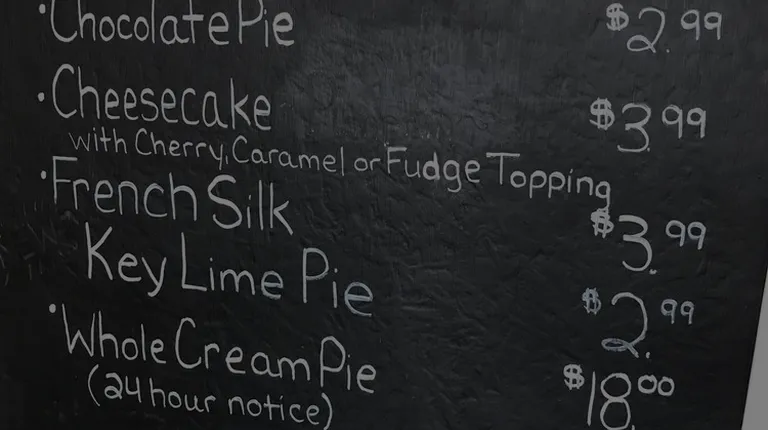 ·Chocolate Pie $2.99
·Cheesecake $3.99
with Cherry, Caramel or Fudge Topping
·French Silk $3.99
Key Lime Pie $2.99
·Whole Cream Pie $18.00
(24 hour notice)